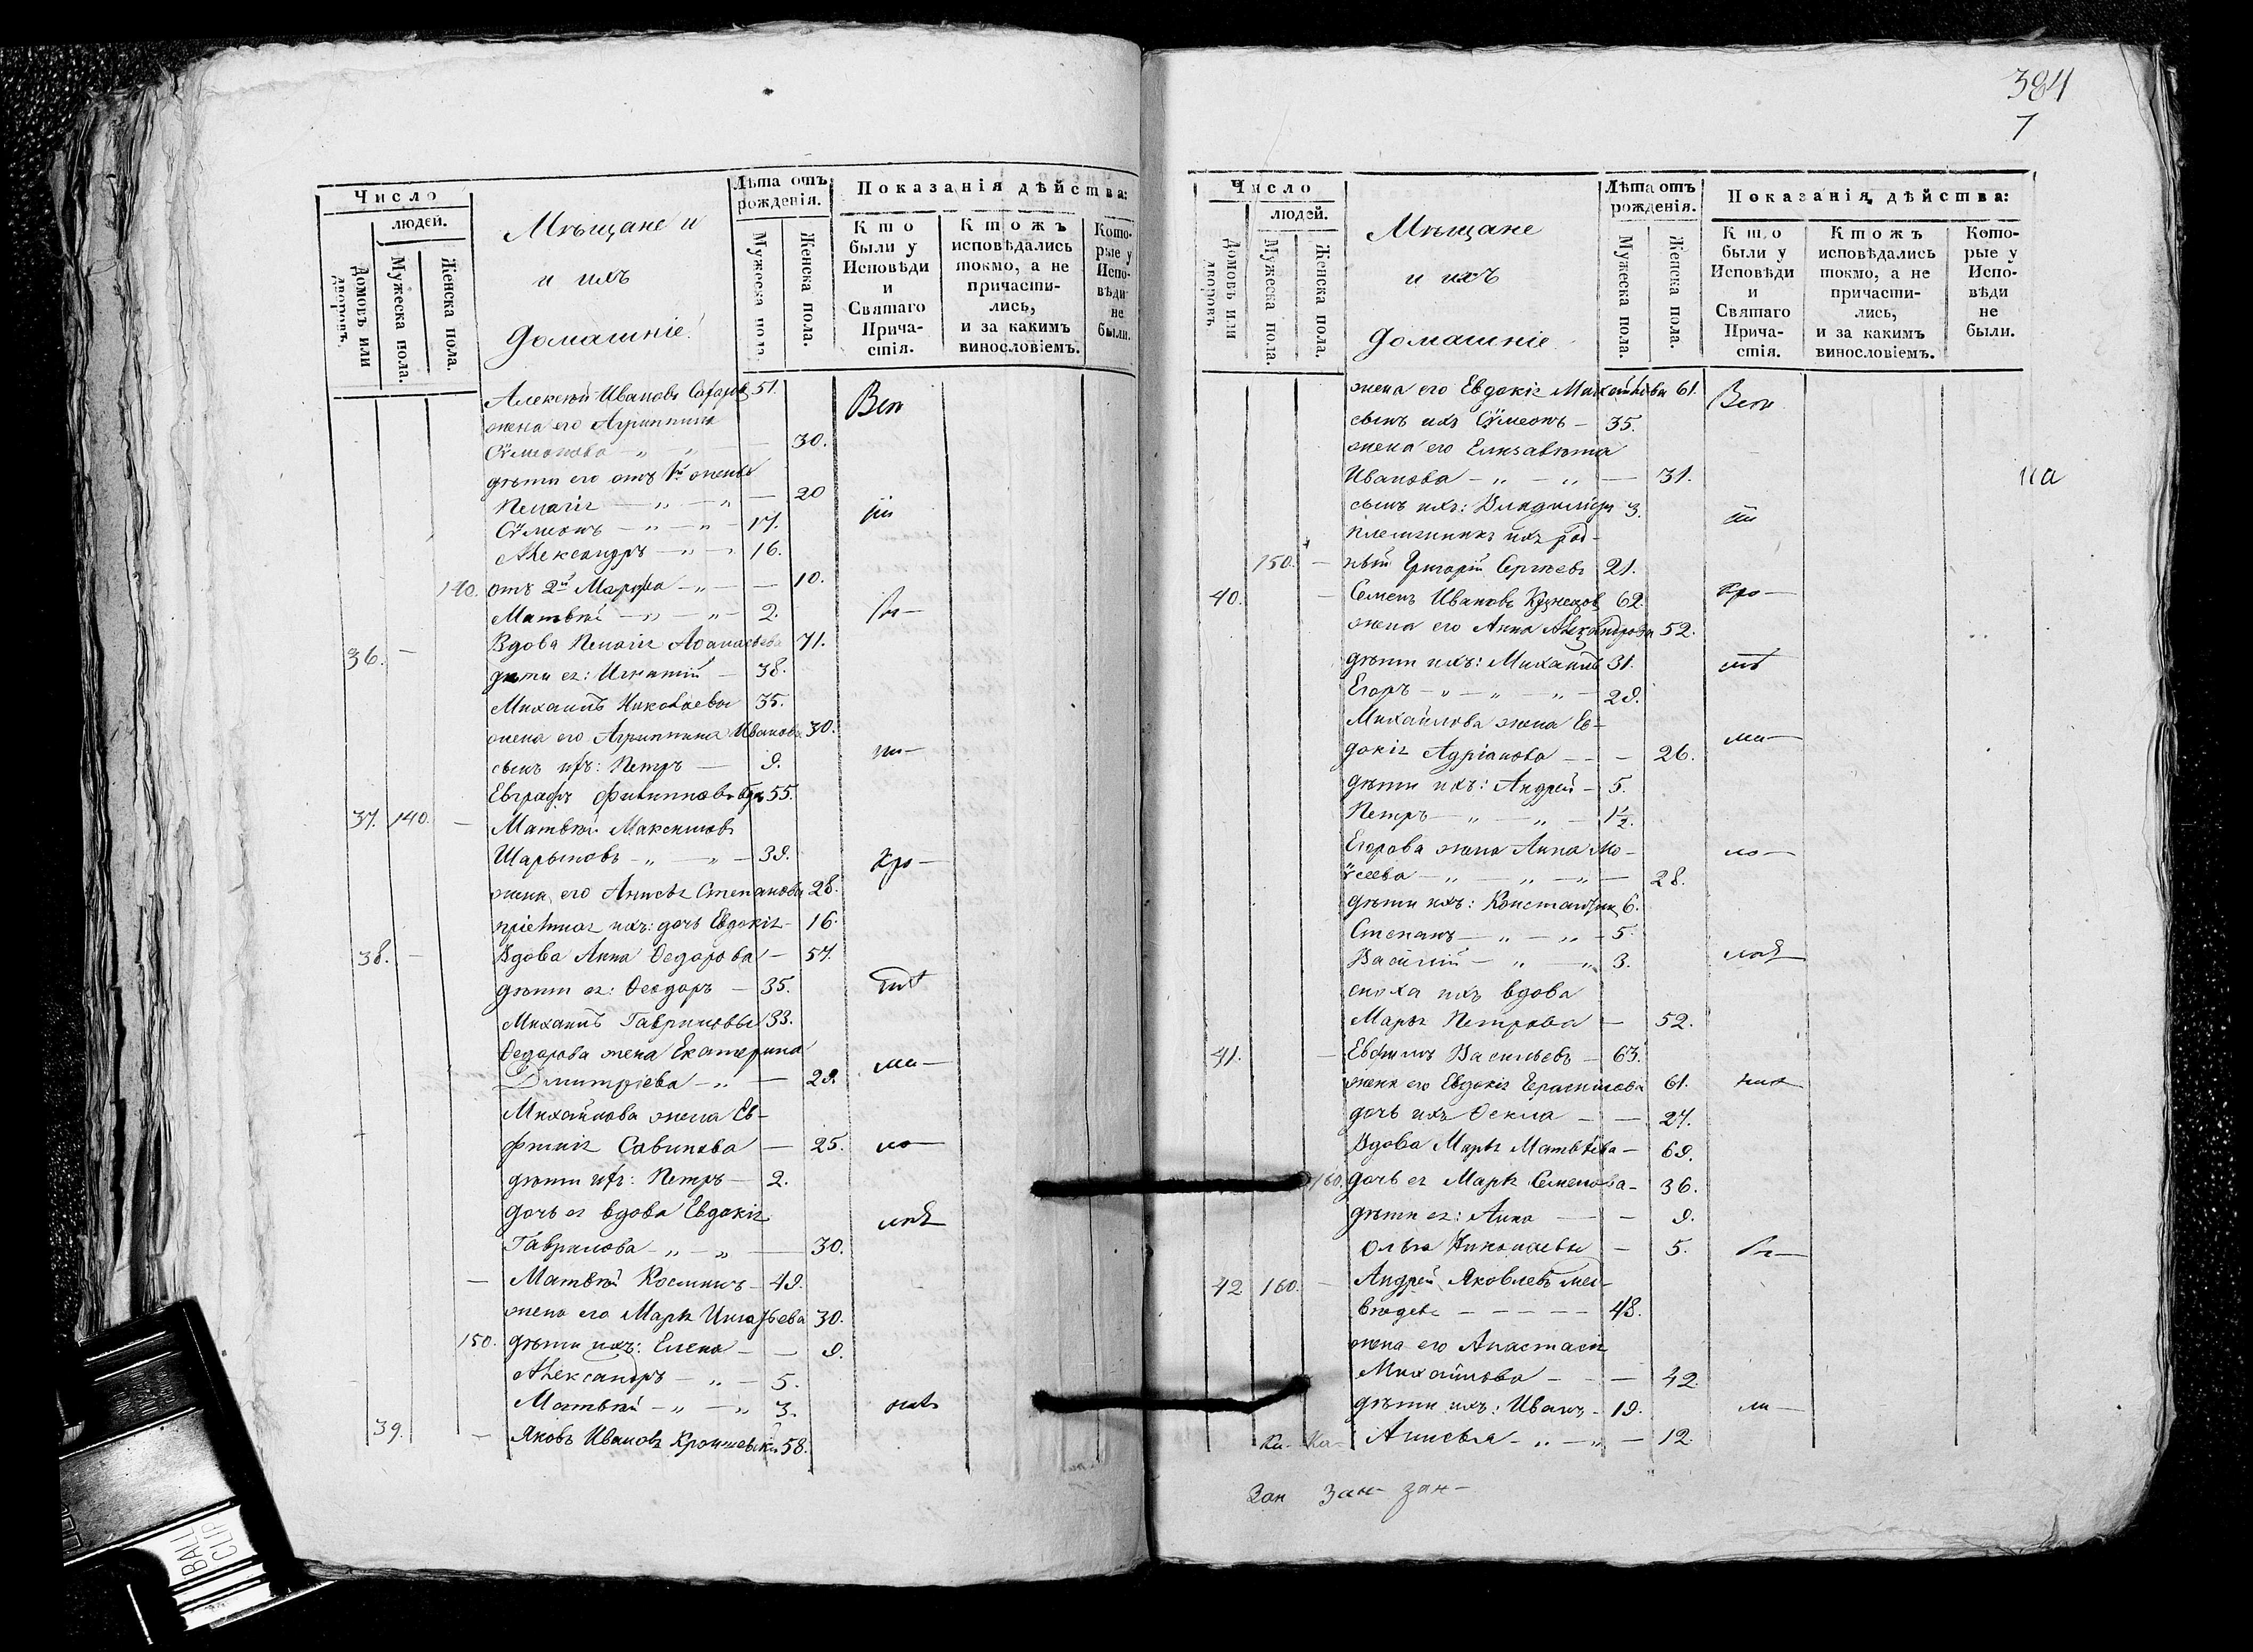 Число
людей.
Домовъ или дворовъ.
Мужеска пола.
Женска пола.
Мѣщане и
и ихъ
домашніе.
Лѣта отъ рожденія.
Мужеска пола.
Женска пола.
Показанія дѣйства:
Кто были у Исповѣди и Святаго Прича-стія.
Ктожъ исповѣдались токмо, а не причасти-лись, и за какимъ винословіемъ.
Кото-рые у Испо-вѣди не были.
Алексѣй Ивановъ 51.
жена его Агриппина
Сѵмеонова — 30.
дѣти его отъ 1й жены
Пелагія — 20
Сѵмеонъ — 17.
Александръ — 16.
140. отъ 2й Марѳа — 10.
Матвѣй — 2.
36. — Вдова Пелагія Аѳанасьева 71.
дѣти ея: Игнатій — 38.
Михаилъ Николаевы 35.
жена его Агриппина Иванова 30.
сынъ ихъ: Петръ — 9.
Евграфъ Филипповъ 55.
37. 140. — Матвѣй Максимовъ
Шарыповъ — 39.
жена его Анисья Степанова 28.
пріемная ихъ: дочь Евдокія — 16.
38. — Вдова Анна Ѳедорова — 57.
дѣти ея: Ѳеодоръ — 35.
Михаилъ Гавриловы 33.
Ѳедорова жена Екатерина
Дмитріева — 29.
Михайлова жена Ев-
фимія Савинова — 25.
дѣти ихъ: Петръ — 2.
дочь ея вдова Евдокія
Гаврилова — 30.
— Матвѣй Косминъ — 49.
жена его Марья Игнатьева 30.
150. дѣти ихъ: Елена — 9.
Александръ — 5.
Матвѣй — 3.
39. — Яковъ Ивановъ 58.
384
7
Число
людей.
Домовъ или дворовъ.
Мужеска пола.
Женска пола.
Мѣщане
и ихъ
домашніе
Лѣта отъ рожденія.
Мужеска пола.
Женска пола.
Показанія дѣйства:
Кто были у Исповѣди и Святаго Прича-стія.
Ктожъ исповѣдались токмо, а не причасти-лись, и за какимъ винословіемъ.
Кото-рые у Испо-вѣди не были.
жена его Евдокія Михайлова 61.
сынъ ихъ Сѵмеонъ — 35.
жена его Елисавета
Иванова — 31.
сынъ ихъ: Владиміръ 3.
племянникъ ихъ род-
150. — ный Григорій Сергѣевъ 21.
40. — Семенъ Ивановъ Кузнецовъ 62.
жена его Анна Александрова 52.
дѣти ихъ: Михаилъ 31.
Егоръ — 29.
Михайлова жена Ев-
докія Адріанова — 26.
дѣти ихъ: Андрей — 5.
Петръ — 1½.
Егорова жена Анна Мо-
ѵсеева — 28.
дѣти ихъ: Константинъ 6.
Степанъ — 5.
Василій — 3.
сноха ихъ вдова
Марья Петрова — 52.
41. — Евфимъ Васильевъ — 63.
жена его Евдокія Герасимова 61.
дочь ихъ Ѳекла — 27.
Вдова Марья Матвѣева — 69.
160. дочь ея Марья Семенова — 36.
дѣти ея: Анна — 9.
Ольга Николаевы — 5.
42 160. — Андрей Яковлевъ Мед-
вѣдевъ — 48.
жена его Анастасія
Михайлова — 42.
дѣти ихъ: Иванъ — 19.
Анисья — 12.